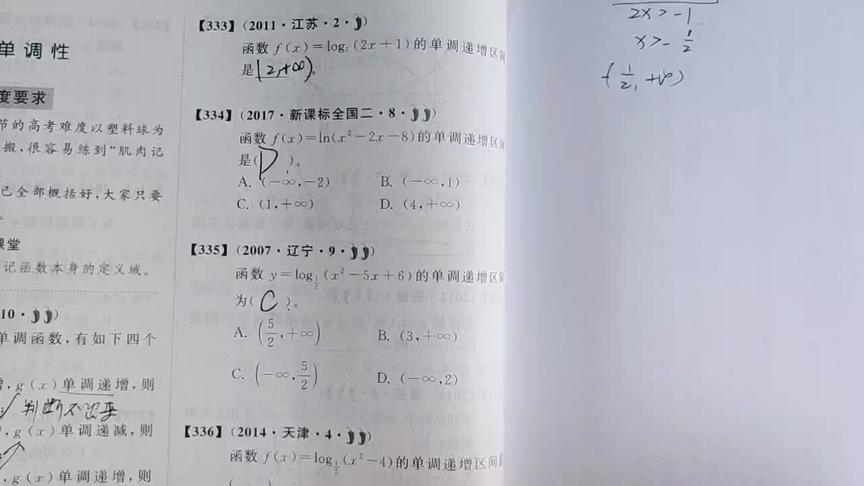 单调性
度要求
节的高考难度以塑料球为
搬,很容易练到“肌肉记
已全部概括好,大家只要
课堂
记函数本身的定义域。
10·
单调函数,有如下四个
,g(x)单调递增,则
判断不出来
,g(x)单调递减,则
,g(x)单调递增,则
【333】(2011·江苏·2·)
函数 f(x)=log₅(2x+1)的单调递增区间
是
【334】(2017·新课标全国二·8·)
函数 f(x)=ln(x²-2x-8)的单调递增区间
是(D)。
A. (-∞,-2) B. (-∞,1)
C. (1,+∞) D. (4,+∞)
【335】(2007·辽宁·9·)
函数 y=log_{1/2}(x²-5x+6)的单调递增区间
为(C)。
A. (5/2,+∞) B. (3,+∞)
C. (-∞,5/2) D. (-∞,2)
【336】(2014·天津·4·)
函数 f(x)=log_{1/2}(x²-4)的单调递增区间
2x>-1
x>-1/2
(1/2,+∞)